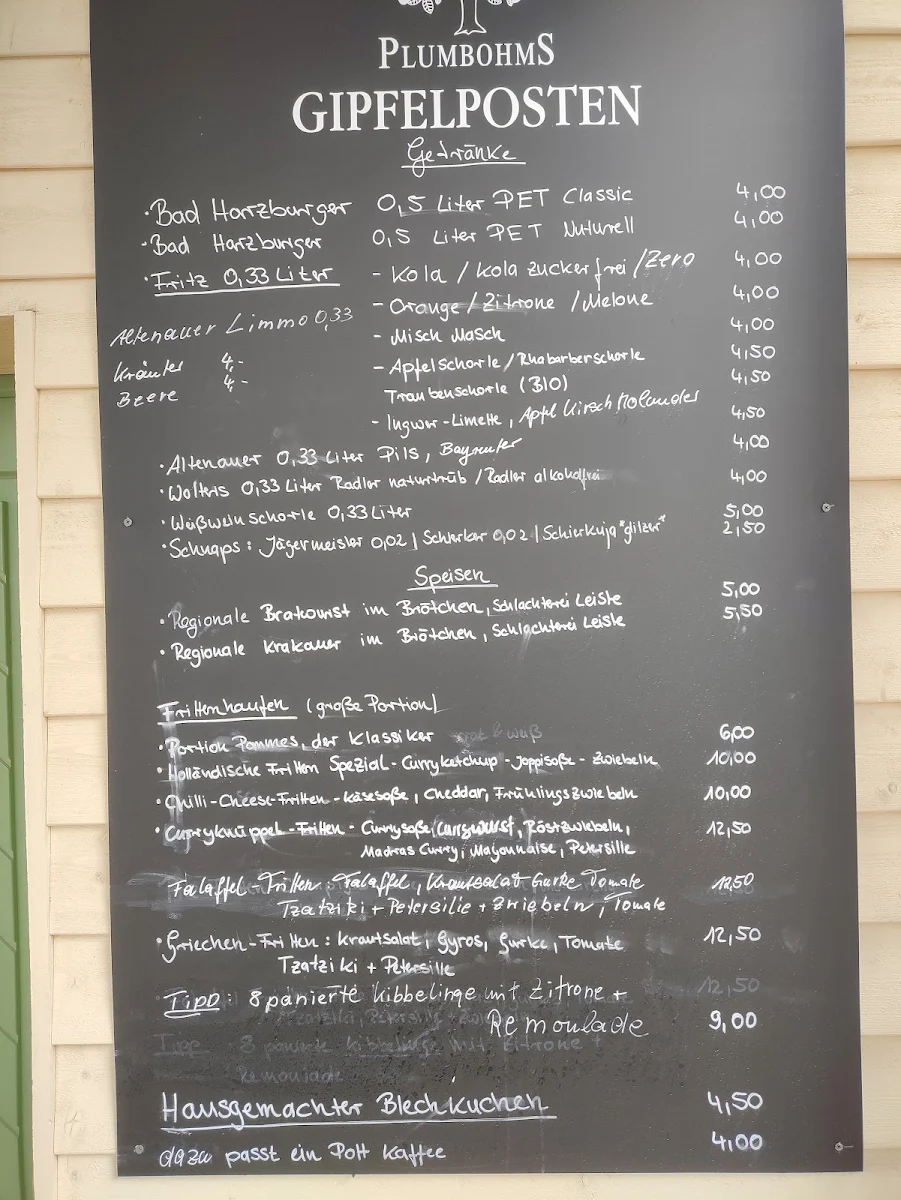 PLUMBOHMS
GIPFELPOSTEN
Getränke
·Bad Harzburger 0,5 Liter PET Classic 4,00
·Bad Harzburger 0,5 Liter PET Naturell 4,00
·Fritz 0,33 Liter - Kola / Kola zuckerfrei / Zero 4,00
- Orange / Zitrone / Melone 4,00
Altenauer Limmo 0,33 - Misch Masch 4,00
Kräuter 4,- - Apfelschorle / Rhabarberschorle 4,50
Beere 4,- Traubenschorle (BIO) 4,50
- Ingwer-Limette, Apfl Kirsch Holunder 4,50
·Altenauer 0,33 Liter Pils, 4,00
·Wolters 0,33 Liter Radler naturtrüb / Radler alkoholfrei 4,00
·Weißweinschorle 0,33 Liter 5,00
·Schnaps: Jägermeister 0,02 | Schierker 0,02 | 2,50
Speisen
·Regionale Bratwurst im Brötchen, Schlachterei Leiste 5,00
·Regionale Krakauer im Brötchen, Schlachterei Leiste 5,50
Frittenhaufen (große Portion)
·Portion Pommes, der Klassiker rot & weiß 6,00
·Holländische Fritten Spezial - Curryketchup - Joppisoße - Zwiebeln 10,00
·Chilli-Cheese-Fritten - Käsesoße, Cheddar, Frühlingszwiebeln 10,00
·Curryknüppel-Fritten - Currysoße, Currywurst, Röstzwiebeln, 12,50
Madras Curry, Mayonnaise, Petersilie
Falaffel-Fritten Falaffel, Krautsalat Gurke Tomate 12,50
Tzatziki + Petersilie + Zwiebeln, Tomate
·Griechen-Fritten: Krautsalat, Gyros, Gurke, Tomate 12,50
Tzatziki + Petersilie
12,50
Tipp: 8 panierte Kibbelinge mit Zitrone +
Remoulade 9,00
Tipp 8 panierte Kibbelinge mit Zitrone +
Remoulade
Hausgemachter Blechkuchen 4,50
dazu passt ein Pott Kaffee 4,00